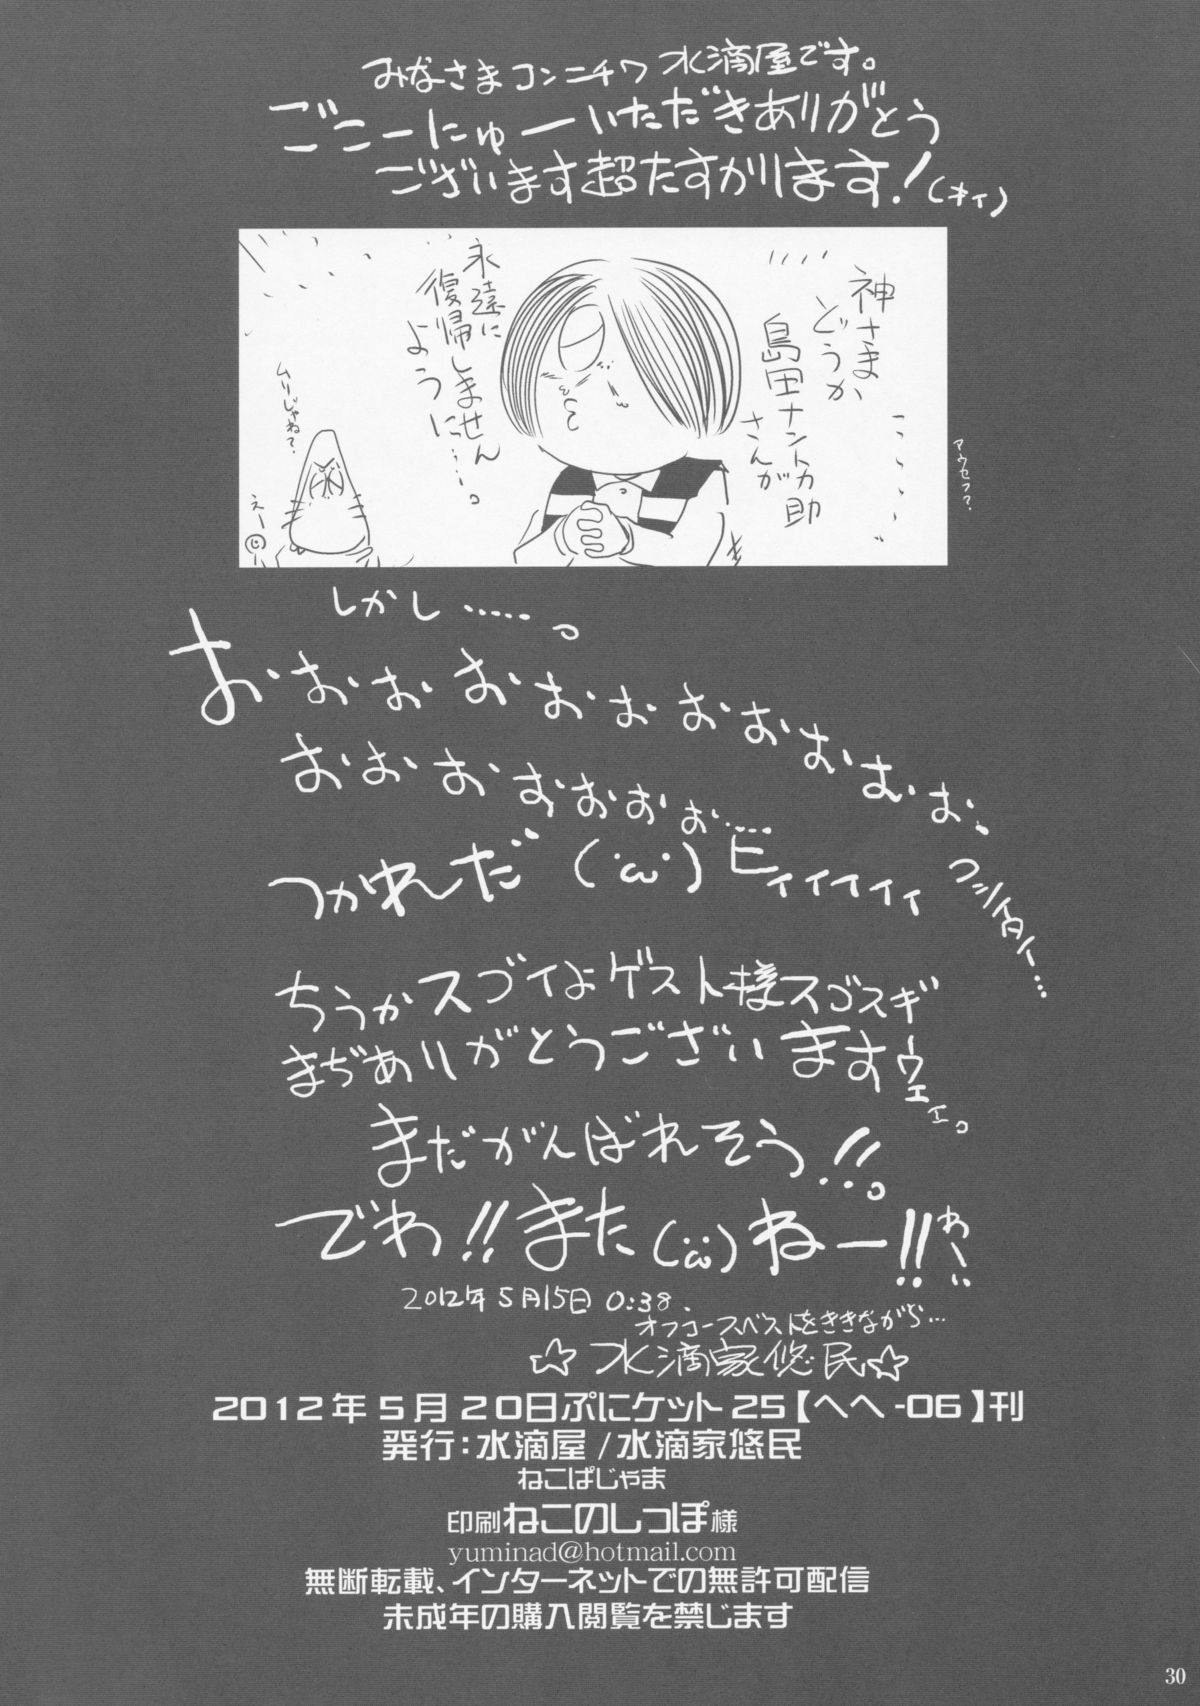 みなさまコンニチワ 水滴屋です。
ごこーにゅーいただきありがとう
ございます超たすかります!(オイ)
神さま
どうか
島田ナントカ助
さんが
永遠に
復帰しません
ように……。
ムリじゃね?
えー
アウセフ?
しかし……。
おおおおおおおおおおお、
おおおおおおお……
コシイタイ…
つかれだ(´ω`)ビィィィィィ
ちうかスゴイよゲスト様スゴスギ
まぢありがとうございますウェェ。
まだがんばれそう!!。
でわ!!また(´ω`)ねー!!
わーい
2012年5月15日 0:38.
オフコースベストをききながら…
☆水滴家悠民☆
2012年5月20日ぷにケット25【へへ-06】刊
発行:水滴屋/水滴家悠民
ねこぱじゃま
印刷ねこのしっぽ様
yuminad@hotmail.com
無断転載、インターネットでの無許可配信
未成年の購入閲覧を禁じます
30